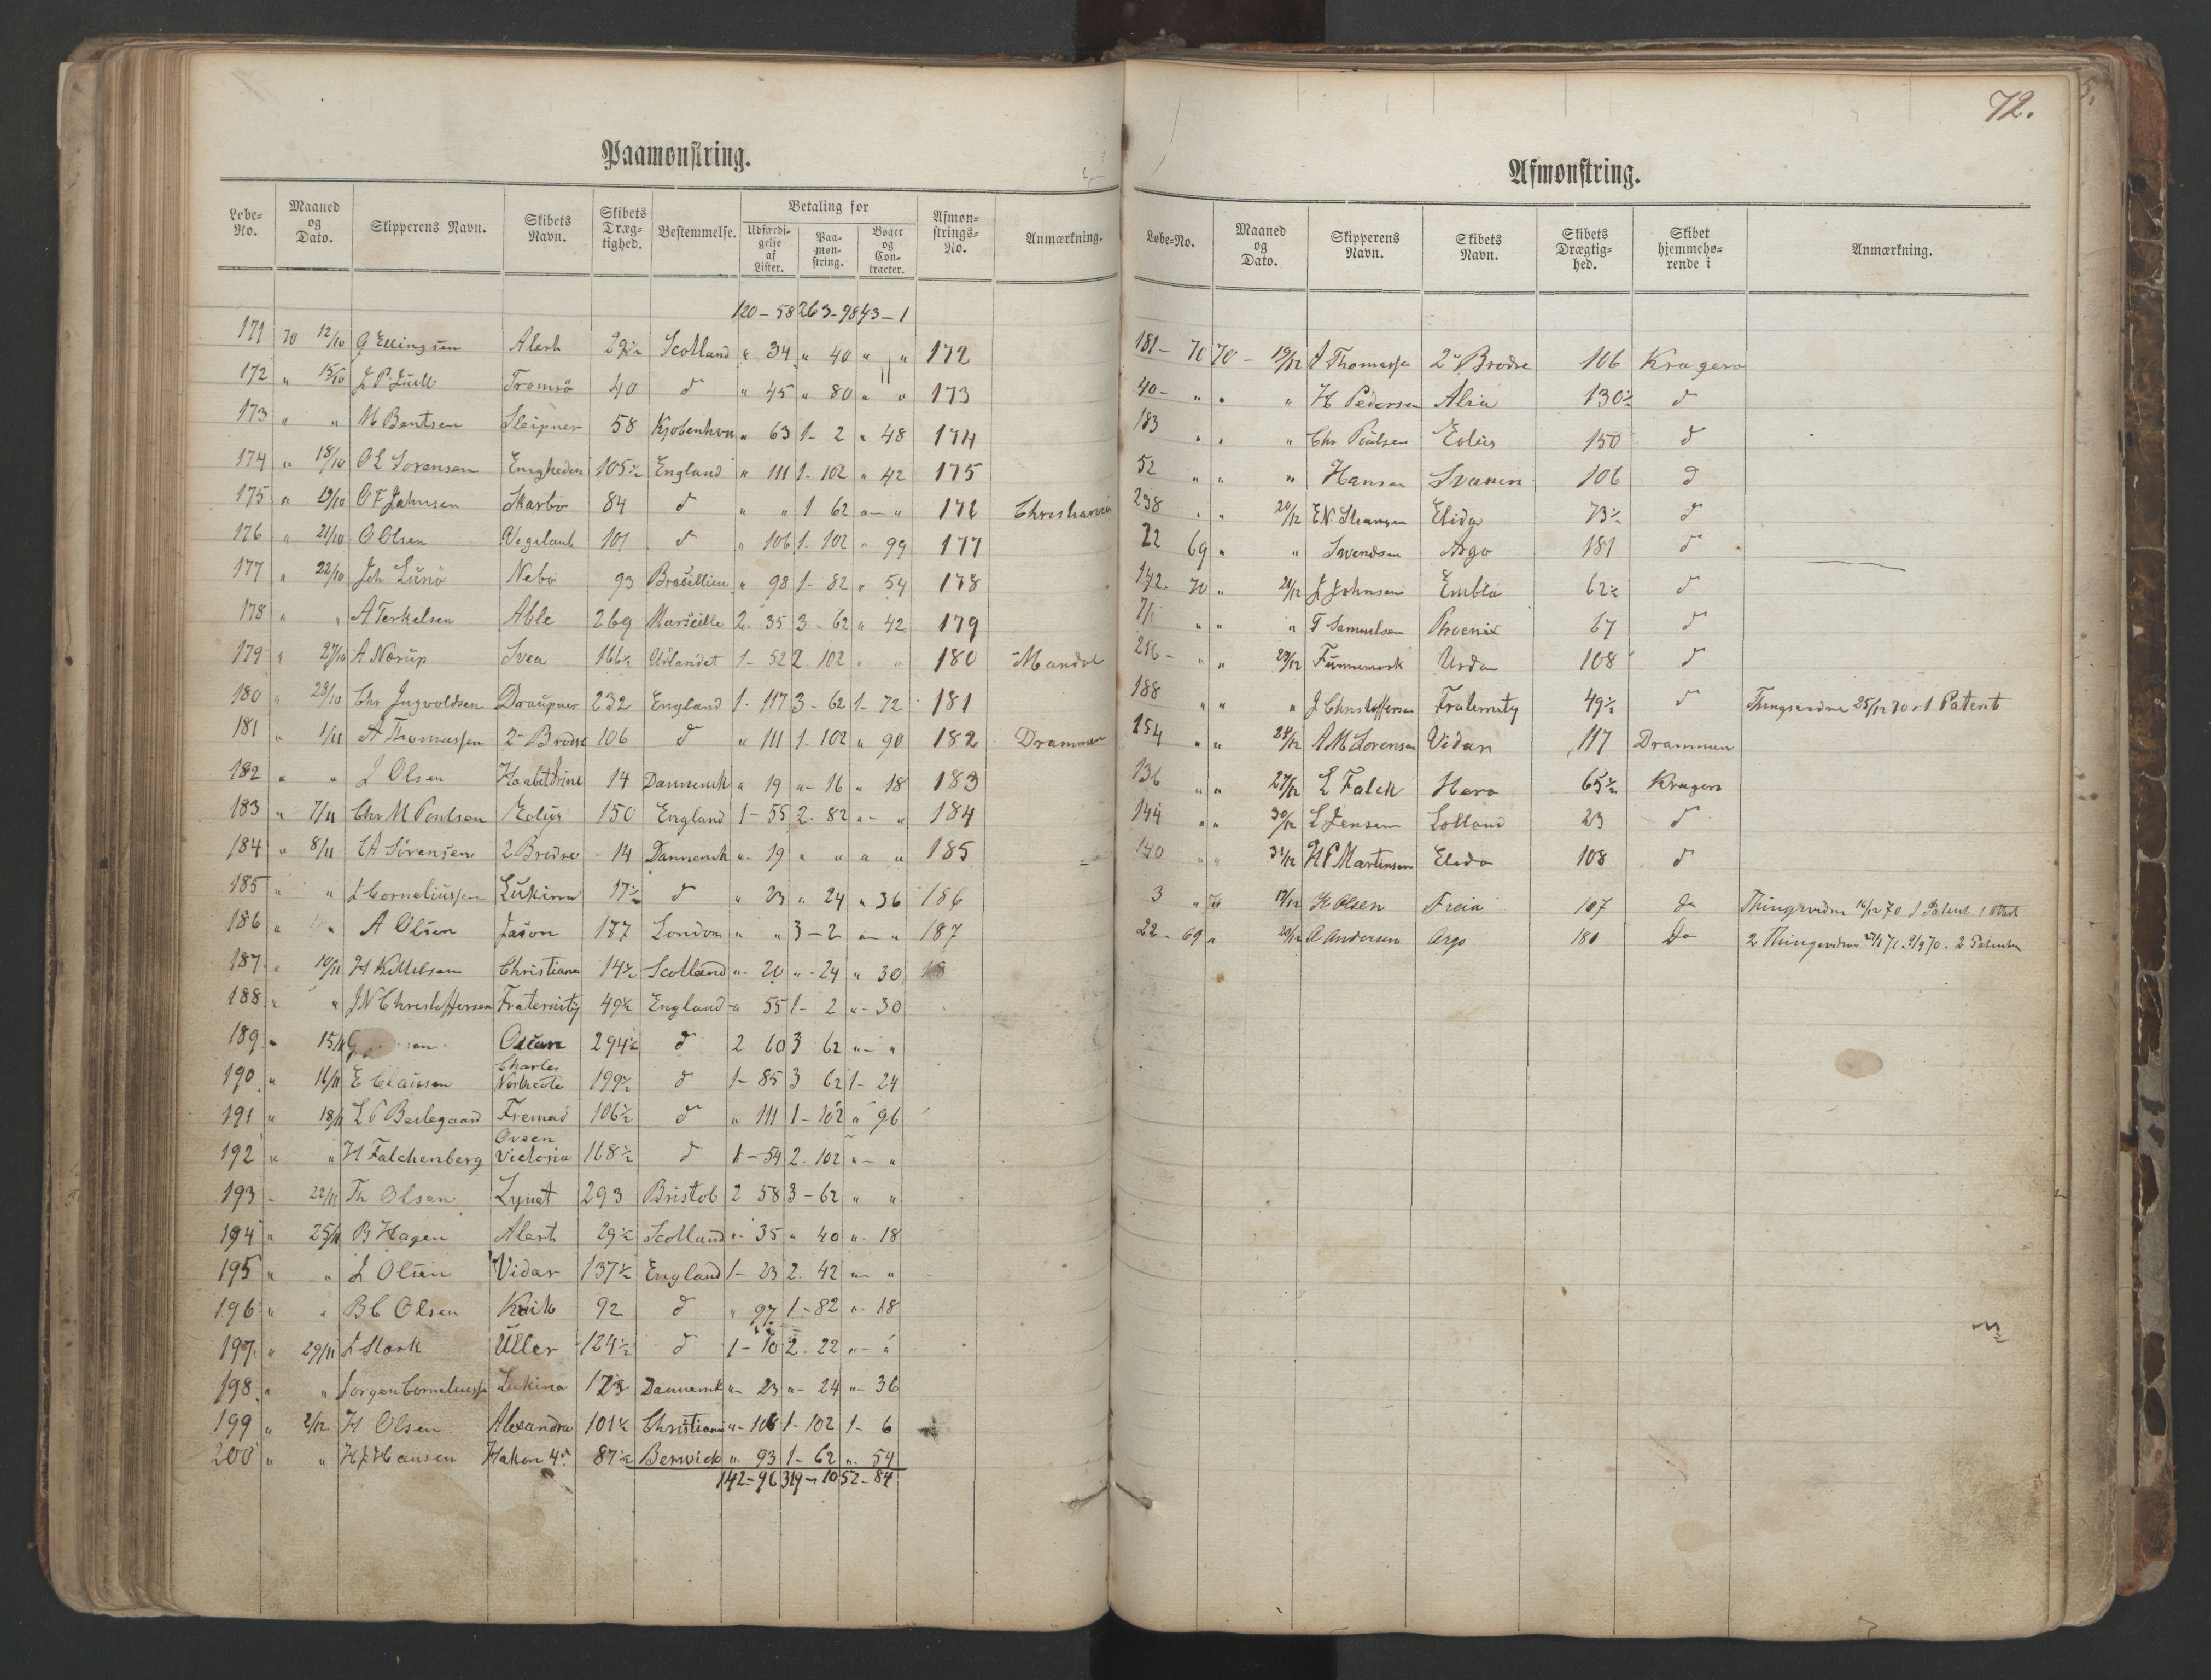 72.
Paamønstring.
Løbe-No. Maaned og Dato. Skipperens Navn. Skibets Navn. Skibets Dræg-tighed. Bestemmelse. Betaling for Udfærdi-gelse af Lister. Paa-møn-string. Bøger og Con-tracter. Afmøn-strings-No. Anmærkning.
120-58 263-98 43-1
171 70 12/10 G Ellingsen Alert 29½ Scotland " 34 " 40 " " 172
172 " 15/10 J P Juell Tromsö 40 d " 45 " 80 " " 173
173 " " M Bentsen Sleipner 58 Kjobenhavn " 63 1- 2 " 48 174
174 " 18/10 O L Sorensen Enigheden 105½ England " 111 1- 102 " 42 175
175 " 19/10 O F Johnsen Skarbo 84 d " " 1 62 "- " 176 Christiania
176 " 21/10 O Olsen 101 d " 106 1- 102 " 99 177
177 " 22/10 Joh Lunö Nebo 93 Brasilien " 98 1- 82 " 54 178
178 " " A Terkelsen Able 269 Marseille 2. 35 3- 62 " 42 179
179 " 27/10 A Norup Svea 166½ Udlandet 1- 52 2. 102 " " 180 Mandal
180 " 28/10 Chr Ingvoldsen Draupner 232 England 1- 117 3- 62 1- 72 181
181 " 1/11 A Thomassen 2 Brodre 106 d " 111 1- 102 " 90 182 Drammen
182 " " J Olsen Haabet 14 Danmark " 19 "- 16 " 18 183
183 " 7/11 Chr M Poulsen Eolus 150 England 1- 55 2. 82 "- " 184
184 " 8/11 C A Sörensen 2 Brodre 14 Danmark " 19 " " " " 185
185 " " J Corneliussen Lukina 17½ d " 23 " 24 " 36 186
186 " A Olsen Jason 187 London " " 3- 2 "- " 187
187 " 10/11 H Kittilsen Christiana 14½ Scotland "- 20 "- 24 " 30
188 " " J N Christoffersen Fraternity 49½ England " 55 1- 2 "- 30
189 " 15/11 Oscar 294½ d 2 60 3 62 "- "
190 " 16/11 E Clausen Charles Northcote 199½ d 1- 85 3 62 1- 24
191 " 18/11 L P Berlegaard Fremad 106½ d " 111 1- 102 " 96
192 " " H Falchenberg Qveen Victoria 168½ d 1- 54 2. 102 "- "
193 - 22/11 Th Olsen Lynet 293 Bristol 2 58 3- 62 " "
194 " 25/11 B Hagen Alert 29½ Scotland "- 35 " 40 "- 18
195 " " J Olsen Vidar 137½ England 1- 23 2. 42 "- "
196 " " B C Olsen 92 d " 97 1- 82 "- 18
197 " 29/11 J Stark Üller 124½ d 1- 10 2- 22 "- "
198 " " Jorgen Corneliussen Lukina Danmark "- 23 "- 24 "- 36
199 " 2/12 H Olsen Alexandra 101½ Christiania "- 106 1- 102 1- 6
200 " " H J Hansen Hakon 4d 87½ Berwick "- 93 1- 62 "- 54
142-96 319-10 52-84
Afmønstring.
Løbe-No. Maaned og Dato. Skipperens Navn. Skibets Navn. Skibets Drægtig-hed. Skibet hjemmehø-rende i Anmærkning.
181- 70 70- 19/12 A Thomassen 2 Brodre 106 Kragero
40- " " " H Pedersen Alia 130½ d
183 " " " Chr Poulsen Eolus 150 d
52 " " " Hansen Svanen 106 d
238 " " 20/12 Elida 73½ d
22 69 " " Svendsen Argo 181 d
142. 70 " 21/12 J Johnsen Embla 62½ d
71 " " " T Samuelsen Phoenix 67 d
216- " " 23/12 Finnemark Urda 108 d
188 " " " J Christoffersen Fraternity 49½ d Thingsvidne 25/12 70 1 Patent
154 " " 24/12 A M Sorensen Vidar 117 Drammen
136 " " 27/12 L Falck Hero 65½ Kragero
144 " " 30/12 L Jensen Lolland 23 d
140 " " 31/12 H P Martinsen Elida 108 d
3 " 70 17/12 H Olsen Freia 107 do Thingsvidne 16/12 70 1 Patent 1
22- 69 " 20/12 A Andersen Argo 181 Do 2 Thingsvidne 2 Patenter